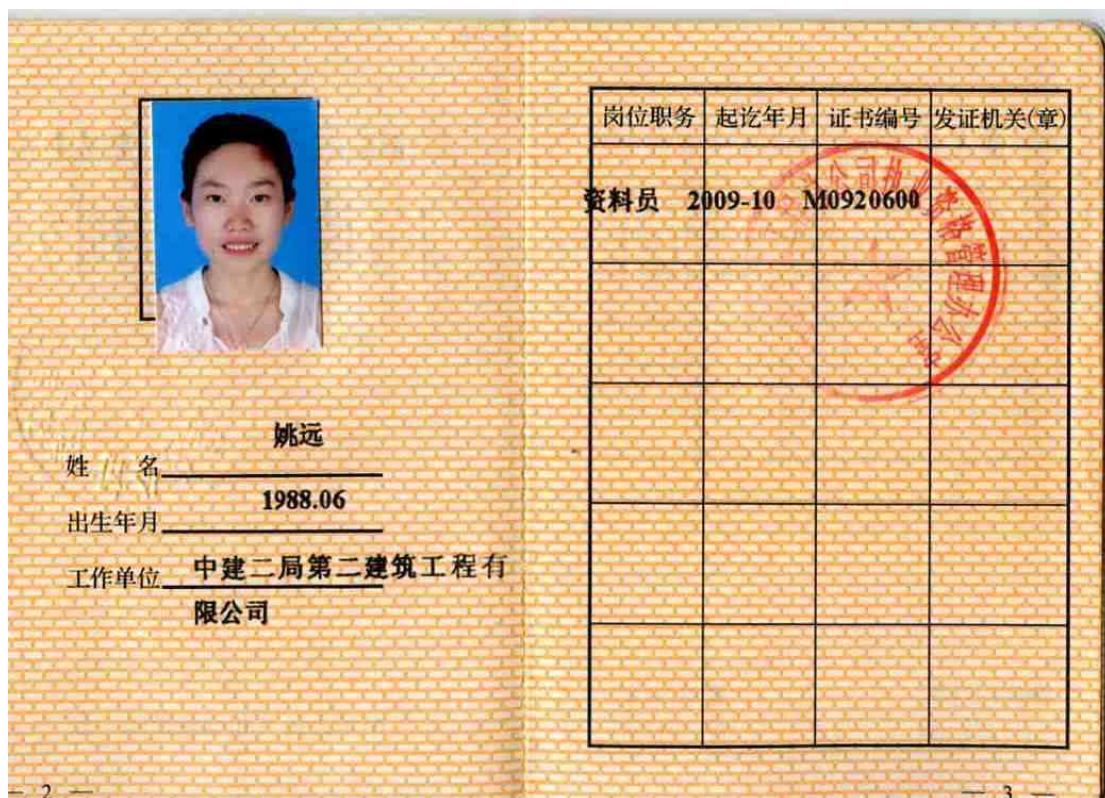 姚远
姓 名
1988.06
出生年月
中建二局第二建筑工程有
工作单位
限公司
— 2 —
岗位职务 起讫年月 证书编号 发证机关(章)
资料员 2009-10 M0920600
公司执业资格管理办公室
— 3 —